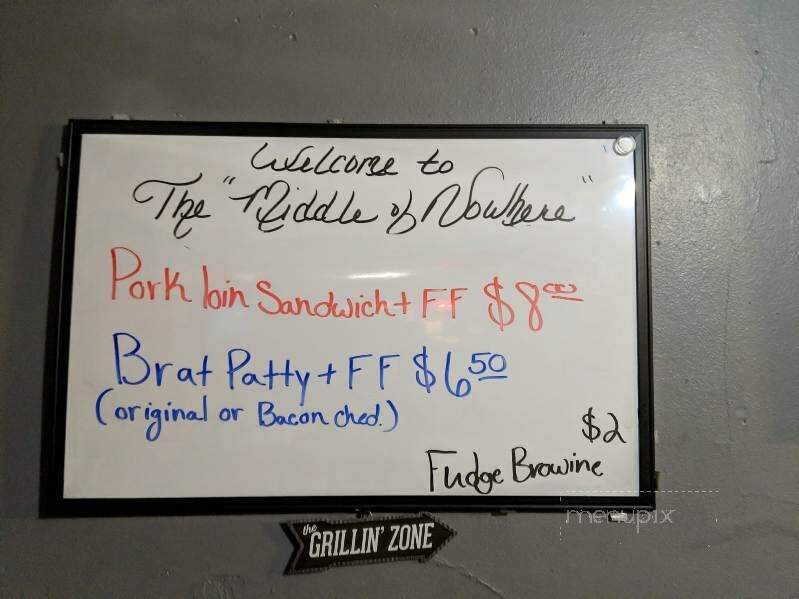 Welcome to
The "Middle of Nowhere"
Pork loin Sandwich + FF $8.00
Brat Patty + FF $6.50
(original or Bacon ched.)
$2
Fudge Browine
menupix
the
GRILLIN' ZONE